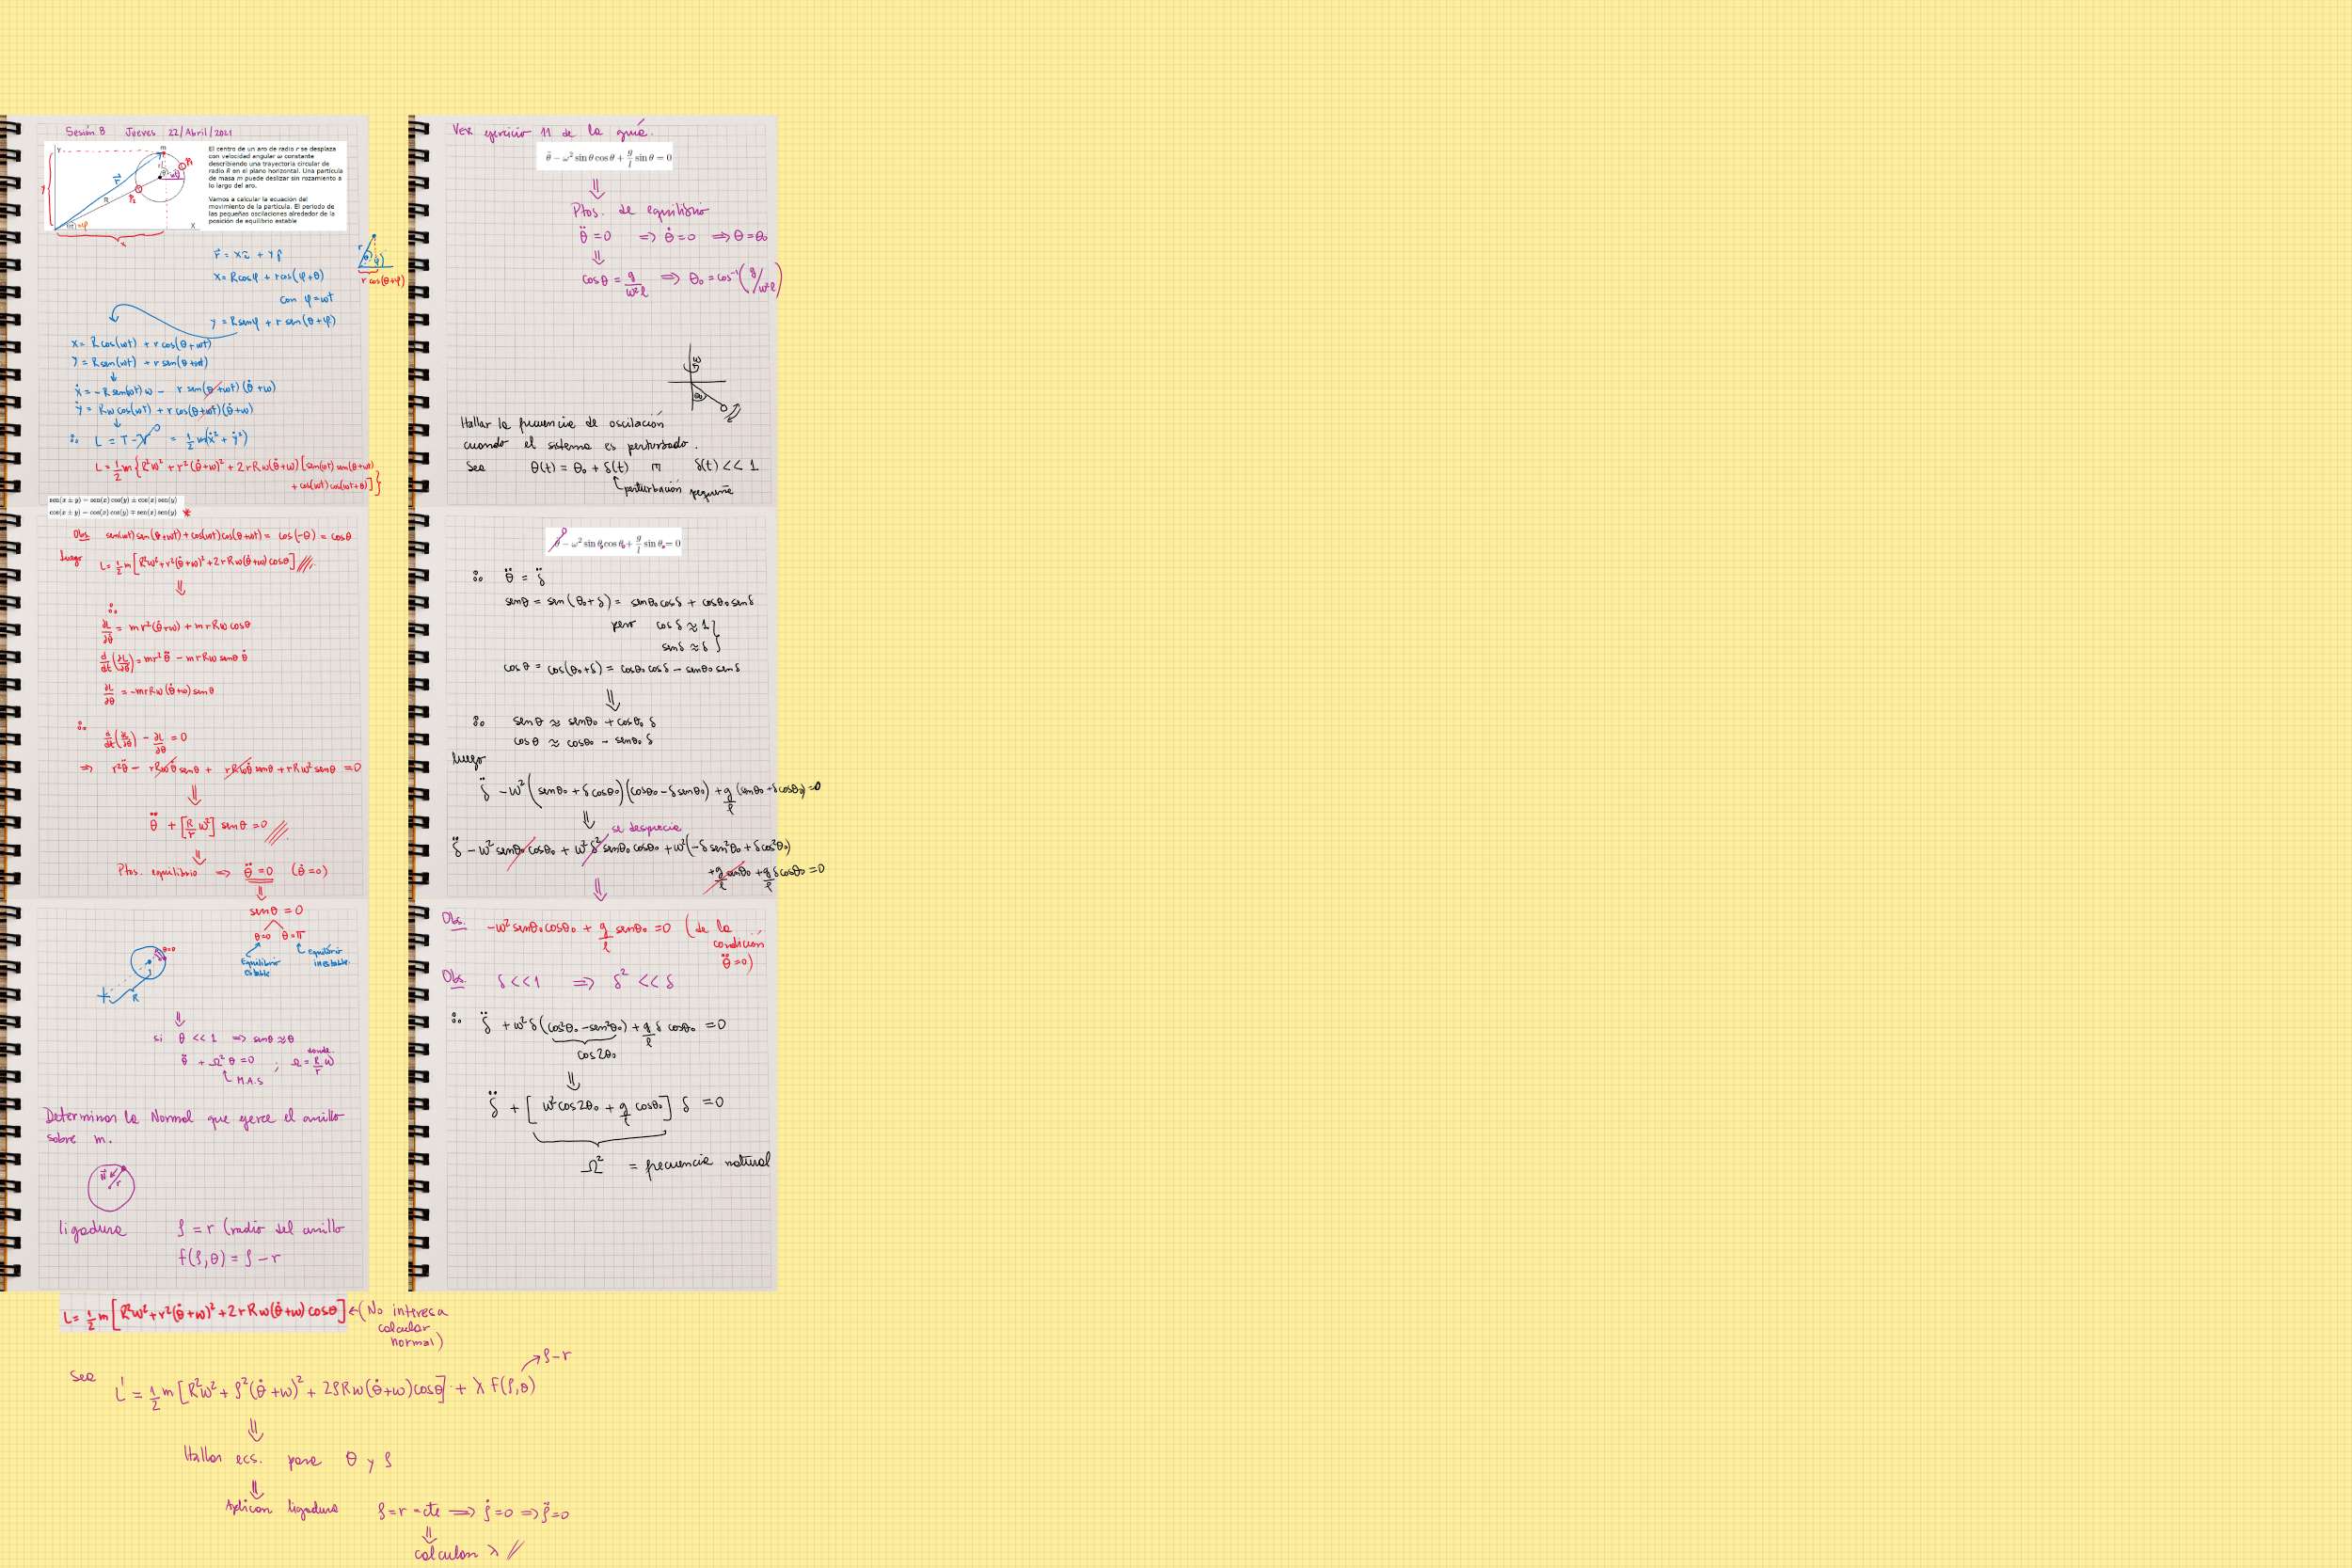 Sesión 8 Jueves 22/Abril/2021
El centro de un aro de radio r se desplaza
con velocidad angular ω constante
describiendo una trayectoria circular de
radio R en el plano horizontal. Una partícula
de masa m puede deslizar sin rozamiento a
lo largo del aro.
Vamos a calcular la ecuación del
movimiento de la partícula. El periodo de
las pequeñas oscilaciones alrededor de la
posición de equilibrio estable
Y
m
R
X
x
r⃗ = xî + yĵ
x = Rcosφ + rcos(φ+θ)
r cos(θ+φ)
con φ=ωt
y = Rsenφ + r sen(θ+φ)
x = Rcos(ωt) + r cos(θ+ωt)
y = Rsen(ωt) + r sen(θ+ωt)
ẋ = -Rsen(ωt)ω - r sen(θ+ωt)(θ̇+ω)
ẏ = Rω cos(ωt) + r cos(θ+ωt)(θ̇+ω)
∴ L = T - V = 1/2 m(ẋ² + ẏ²)
L = 1/2 m{R²ω² + r²(θ̇+ω)² + 2rRω(θ̇+ω)[sen(ωt)sen(θ+ωt)
+ cos(ωt)cos(ωt+θ)]}
sen(x ± y) = sen(x) cos(y) ± cos(x) sen(y)
cos(x ± y) = cos(x) cos(y) ∓ sen(x) sen(y) *
Obs sen(ωt)sen(θ+ωt) + cos(ωt)cos(θ+ωt) = cos(-θ) = cosθ
Luego L = 1/2 m[R²ω² + r²(θ̇+ω)² + 2rRω(θ̇+ω)cosθ]
⇓
∴
∂L/∂θ̇ = mr²(θ̇+ω) + mrRω cosθ
d/dt(∂L/∂θ̇) = mr²θ̈ - mrRω senθ θ̇
∂L/∂θ = -mrRω(θ̇+ω) senθ
∴
d/dt(∂L/∂θ̇) - ∂L/∂θ = 0
⇒ r²θ̈ - rRωθ̇ senθ + rRωθ̇ senθ + rRω² senθ = 0
⇓
θ̈ + [R/r ω²] senθ = 0
⇓
Ptos. equilibrio ⇒ θ̈ = 0 (θ̇=0)
⇓
senθ = 0
θ=0 θ=π
Equilibrio estable
Equilibrio inestable
θ=0
R
⇓
si θ << 1 ⇒ senθ ≈ θ
θ̈ + Ω² θ = 0 ; donde Ω = R/r ω
M.A.S
Determinar la Normal que ejerce el anillo
sobre m.
N⃗
r
ligadura ρ = r (radio del anillo
f(ρ,θ) = ρ - r
L = 1/2 m[R²ω² + r²(θ̇+ω)² + 2rRω(θ̇+ω)cosθ] ← (No interesa
calcular
normal)
ρ-r
Sea L' = 1/2 m[R²ω² + ρ²(θ̇+ω)² + 2ρRω(θ̇+ω)cosθ] + λ f(ρ,θ)
⇓
Hallar ecs. para θ y ρ
⇓
Aplicar ligadura ρ = r = cte ⇒ ρ̇=0 ⇒ ρ̈=0
⇓
calcular λ //
Ver ejercicio 11 de la guía.
θ̈ − ω² sin θ cos θ + g/l sin θ = 0
⇓
Ptos. de equilibrio
θ̈ = 0 ⇒ θ̇ = 0 ⇒ θ = θ₀
⇓
cosθ = g/ω²ℓ ⇒ θ₀ = cos⁻¹(g/ω²ℓ)
ω
θ₀
Hallar la frecuencia de oscilación
cuando el sistema es perturbado.
Sea θ(t) = θ₀ + δ(t) m δ(t) << 1
perturbación pequeña
θ̈ − ω² sin θ₀ cos θ₀ + g/l sin θ₀ = 0
0
∴ θ̈ = δ̈
senθ = sen(θ₀+δ) = senθ₀cosδ + cosθ₀senδ
pero cosδ ≈ 1
senδ ≈ δ
cosθ = cos(θ₀+δ) = cosθ₀cosδ - senθ₀senδ
⇓
∴ senθ ≈ senθ₀ + cosθ₀ δ
cosθ ≈ cosθ₀ - senθ₀ δ
luego
δ̈ - ω²(senθ₀ + δcosθ₀)(cosθ₀ - δsenθ₀) + g/ℓ(senθ₀ + δcosθ₀) = 0
⇓ se desprecia
δ̈ - ω²senθ₀cosθ₀ + ω²δ²senθ₀cosθ₀ + ω²(-δsen²θ₀ + δcos²θ₀)
+ g/ℓ senθ₀ + g/ℓ δcosθ₀ = 0
⇓
Obs. -ω²senθ₀cosθ₀ + g/ℓ senθ₀ = 0 (de la
condición
θ̈=0)
Obs. δ<<1 ⇒ δ² << δ
∴ δ̈ + ω²δ(cos²θ₀ - sen²θ₀) + g/ℓ δ cosθ₀ = 0
cos2θ₀
⇓
δ̈ + [ω²cos2θ₀ + g/ℓ cosθ₀] δ = 0
Ω² = frecuencia natural